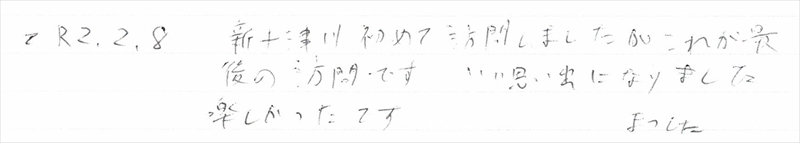 R2.2.8 新十津川初めて訪問しましたがこれが最
後の訪問です いい思い出になりました
楽しかったです まつした